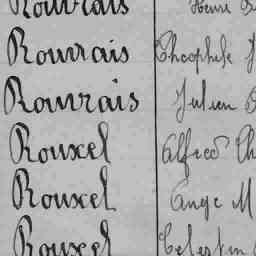 Rouvrais Henri
Rouvrais Théophile J
Rouvrais Julien
Rouxel Alfred Th
Rouxel Ange M
Rouxel Célestin